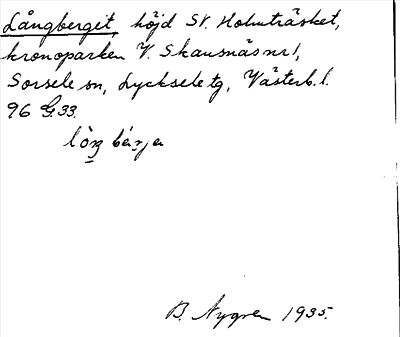 Långberget, höjd SV. Holmträsket,
kronoparken V. Skansnäs nr 1,
Sorsele sn, Lycksele tg, Västerb. l.
96 G. 33.
lòŋ bárja
B. Nygren 1935.